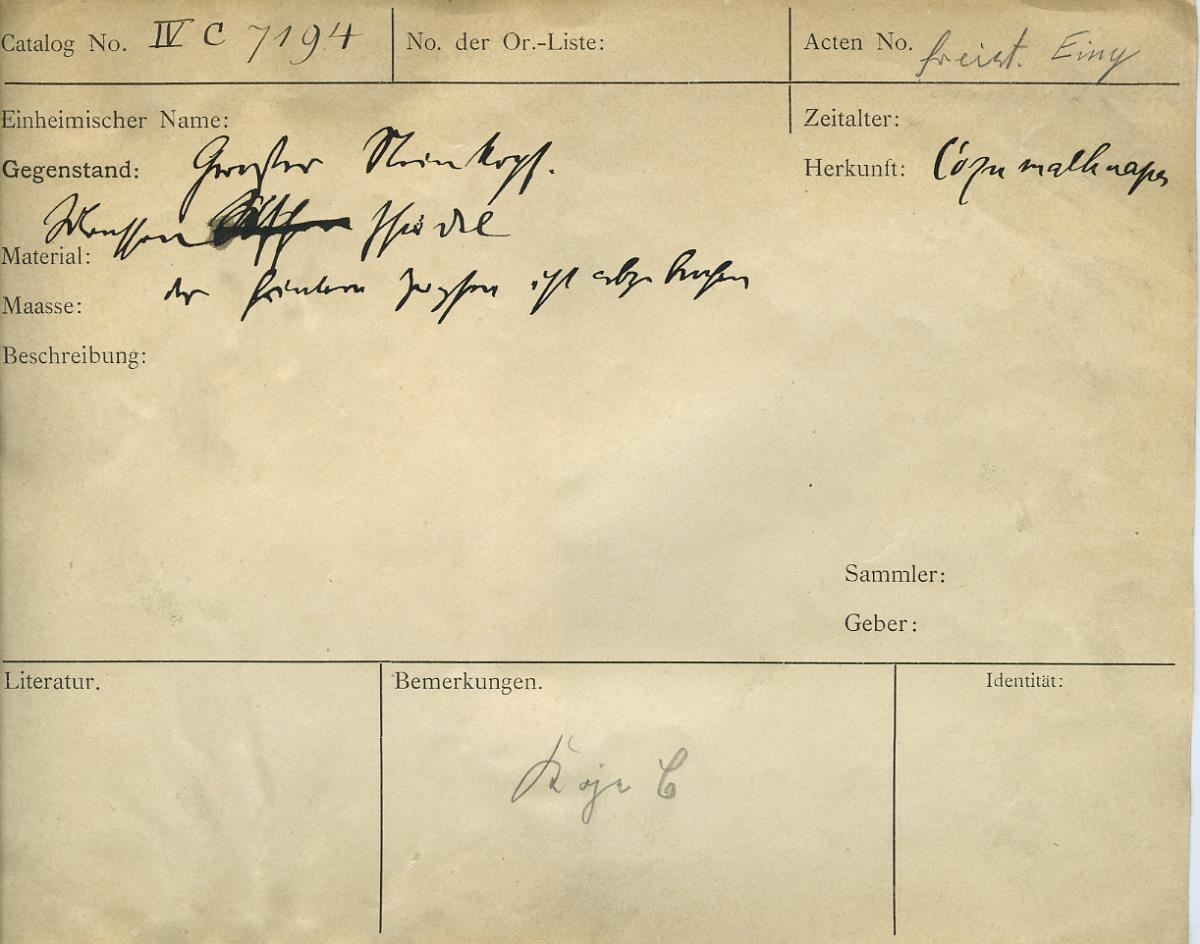 Catalog No. IV C 7194
No. der Or.-Liste:
Acten No. freist. Eing
Einheimischer Name:
Zeitalter:
Gegenstand: Grosser Steinkopf.
Herkunft: Cózumalhuapa
Menschen schädel
Material:
der hintere Zapfen ist abgebrochen
Maasse:
Beschreibung:
Sammler:
Geber:
Literatur.
Bemerkungen.
Identität:
Koje C